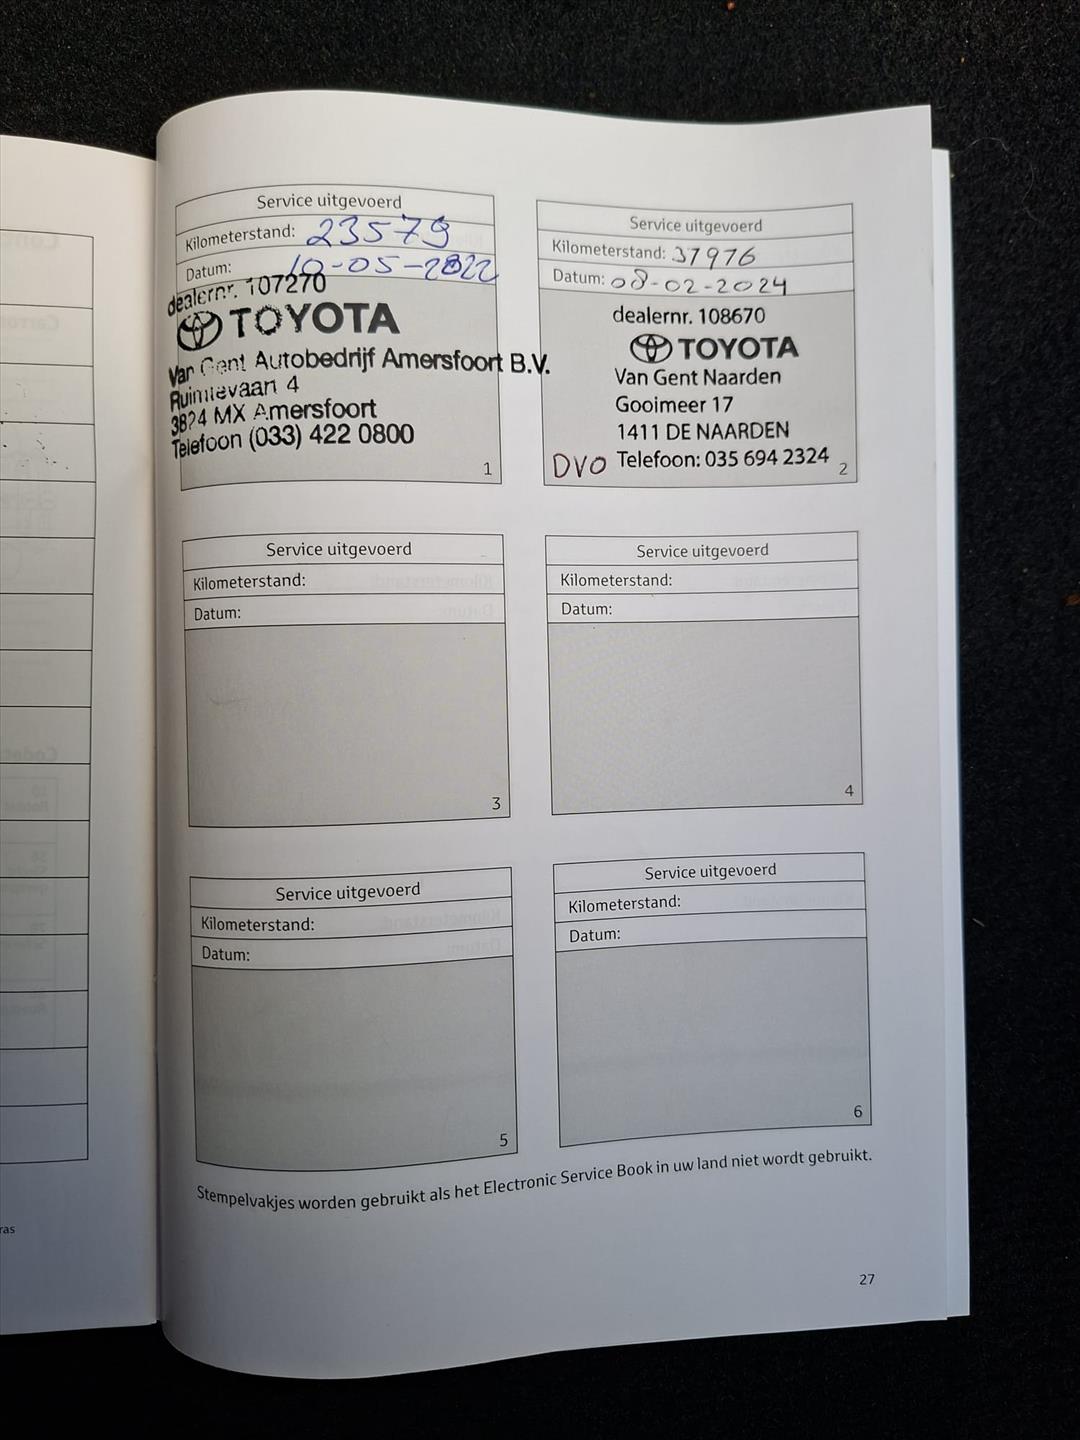 Service uitgevoerd
Kilometerstand: 23579
Datum: 10-05-2022
dealernr. 107270
TOYOTA
Van Gent Autobedrijf Amersfoort B.V.
Ruimtevaart 4
3824 MX Amersfoort
Telefoon (033) 422 0800
1
Service uitgevoerd
Kilometerstand: 37976
Datum: 08-02-2024
dealernr. 108670
TOYOTA
Van Gent Naarden
Gooimeer 17
1411 DE NAARDEN
DVO Telefoon: 035 694 2324
2
Service uitgevoerd
Kilometerstand:
Datum:
3
Service uitgevoerd
Kilometerstand:
Datum:
4
Service uitgevoerd
Kilometerstand:
Datum:
5
Service uitgevoerd
Kilometerstand:
Datum:
6
Stempelvakjes worden gebruikt als het Electronic Service Book in uw land niet wordt gebruikt.
27
ras